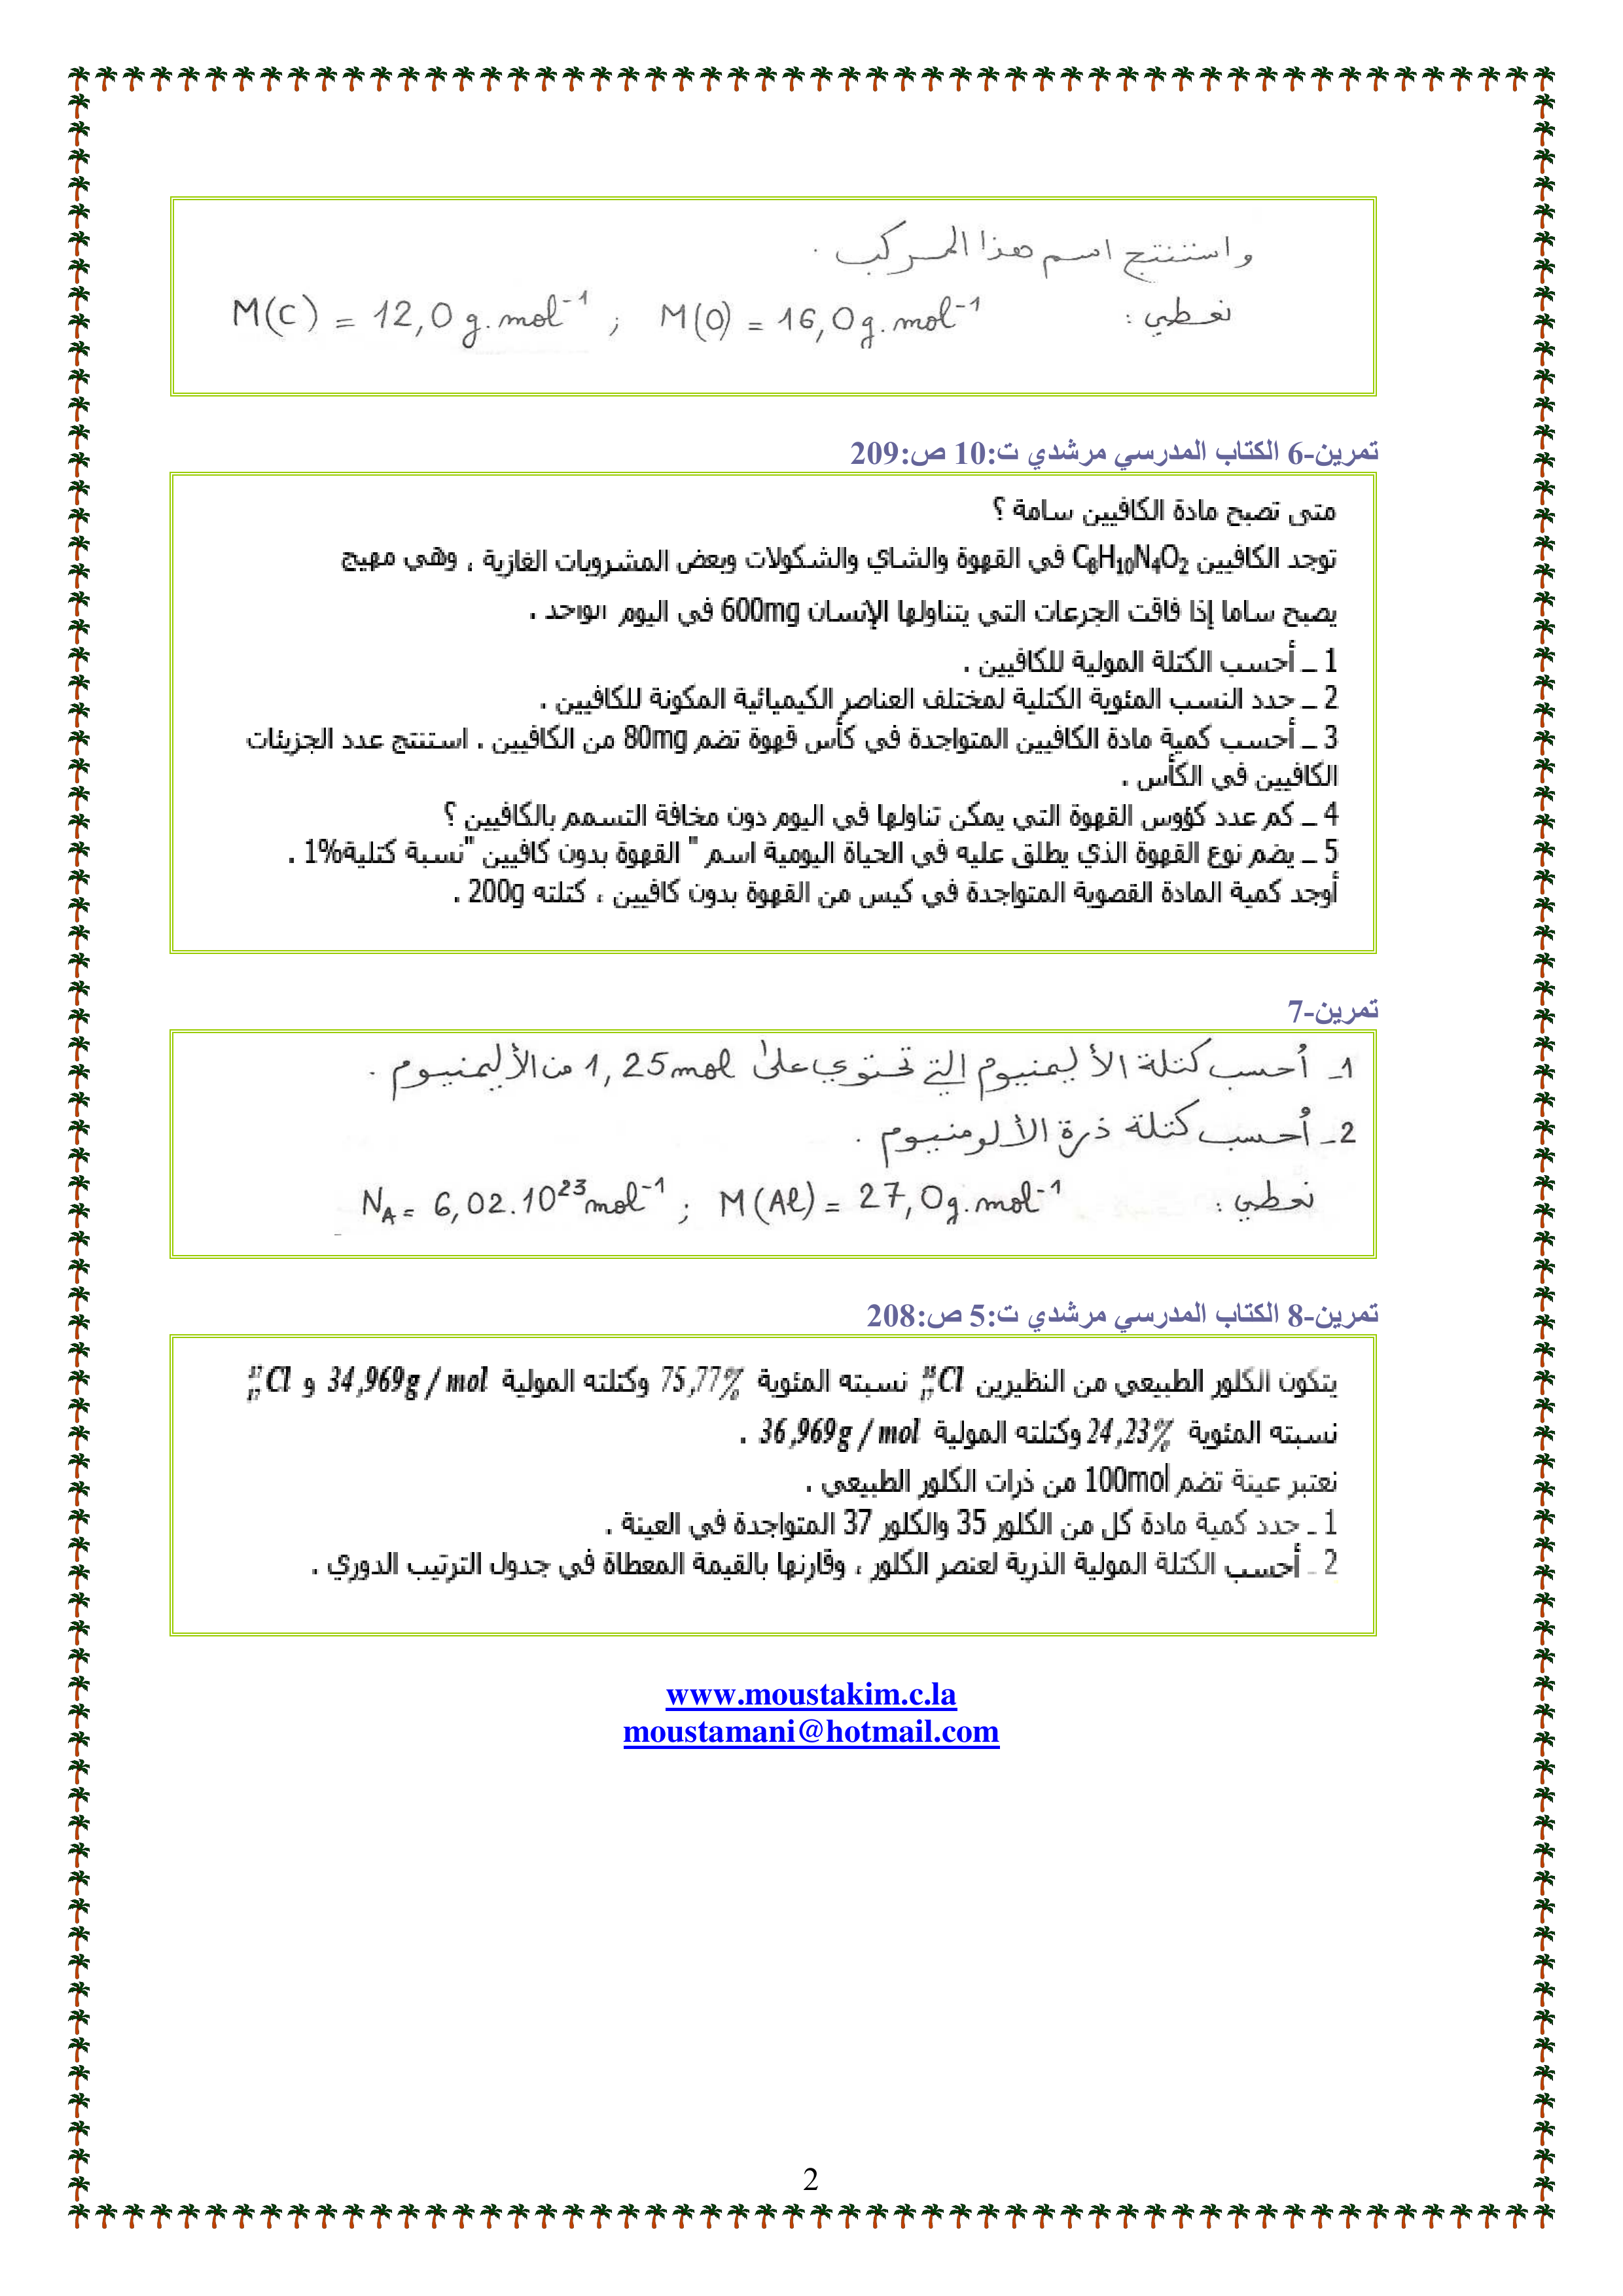 واستنتج اسم هذا المركب .
نعطي : M(C) = 12,0 g.mol⁻¹ ; M(O) = 16,0 g.mol⁻¹
تمرين-6 الكتاب المدرسي مرشدي ت:10 ص:209
متى تصبح مادة الكافيين سامة ؟
توجد الكافيين C₈H₁₀N₄O₂ في القهوة والشاي والشكولات وبعض المشروبات الغازية ، وهي مهيج
يصبح ساما إذا فاقت الجرعات التي يتناولها الإنسان 600mg في اليوم الواحد .
1 ــ أحسب الكتلة المولية للكافيين .
2 ــ حدد النسب المئوية الكتلية لمختلف العناصر الكيميائية المكونة للكافيين .
3 ــ أحسب كمية مادة الكافيين المتواجدة في كأس قهوة تضم 80mg من الكافيين . استنتج عدد الجزيئات
الكافيين في الكأس .
4 ــ كم عدد كؤوس القهوة التي يمكن تناولها في اليوم دون مخافة التسمم بالكافيين ؟
5 ــ يضم نوع القهوة الذي يطلق عليه في الحياة اليومية اسم " القهوة بدون كافيين "نسبة كتلية1% .
أوجد كمية المادة القصوية المتواجدة في كيس من القهوة بدون كافيين ، كتلته 200g .
تمرين-7
1ـ أحسب كتلة الأليمنيوم التي تحتوي على 1,25mol من الأليمنيوم .
2ـ أحسب كتلة ذرة الألومنيوم .
نعطي : N_A = 6,02.10²³ mol⁻¹ ; M(Al) = 27,0g.mol⁻¹
تمرين-8 الكتاب المدرسي مرشدي ت:5 ص:208
يتكون الكلور الطبيعي من النظيرين ³⁵₁₇Cl نسبته المئوية 75,77% وكتلته المولية 34,969g / mol و ³⁷₁₇Cl
نسبته المئوية 24,23% وكتلته المولية 36,969g / mol .
نعتبر عينة تضم 100mol من ذرات الكلور الطبيعي .
1 ـ حدد كمية مادة كل من الكلور 35 والكلور 37 المتواجدة في العينة .
2 ـ أحسب الكتلة المولية الذرية لعنصر الكلور ، وقارنها بالقيمة المعطاة في جدول الترتيب الدوري .
www.moustakim.c.la
moustamani@hotmail.com
2